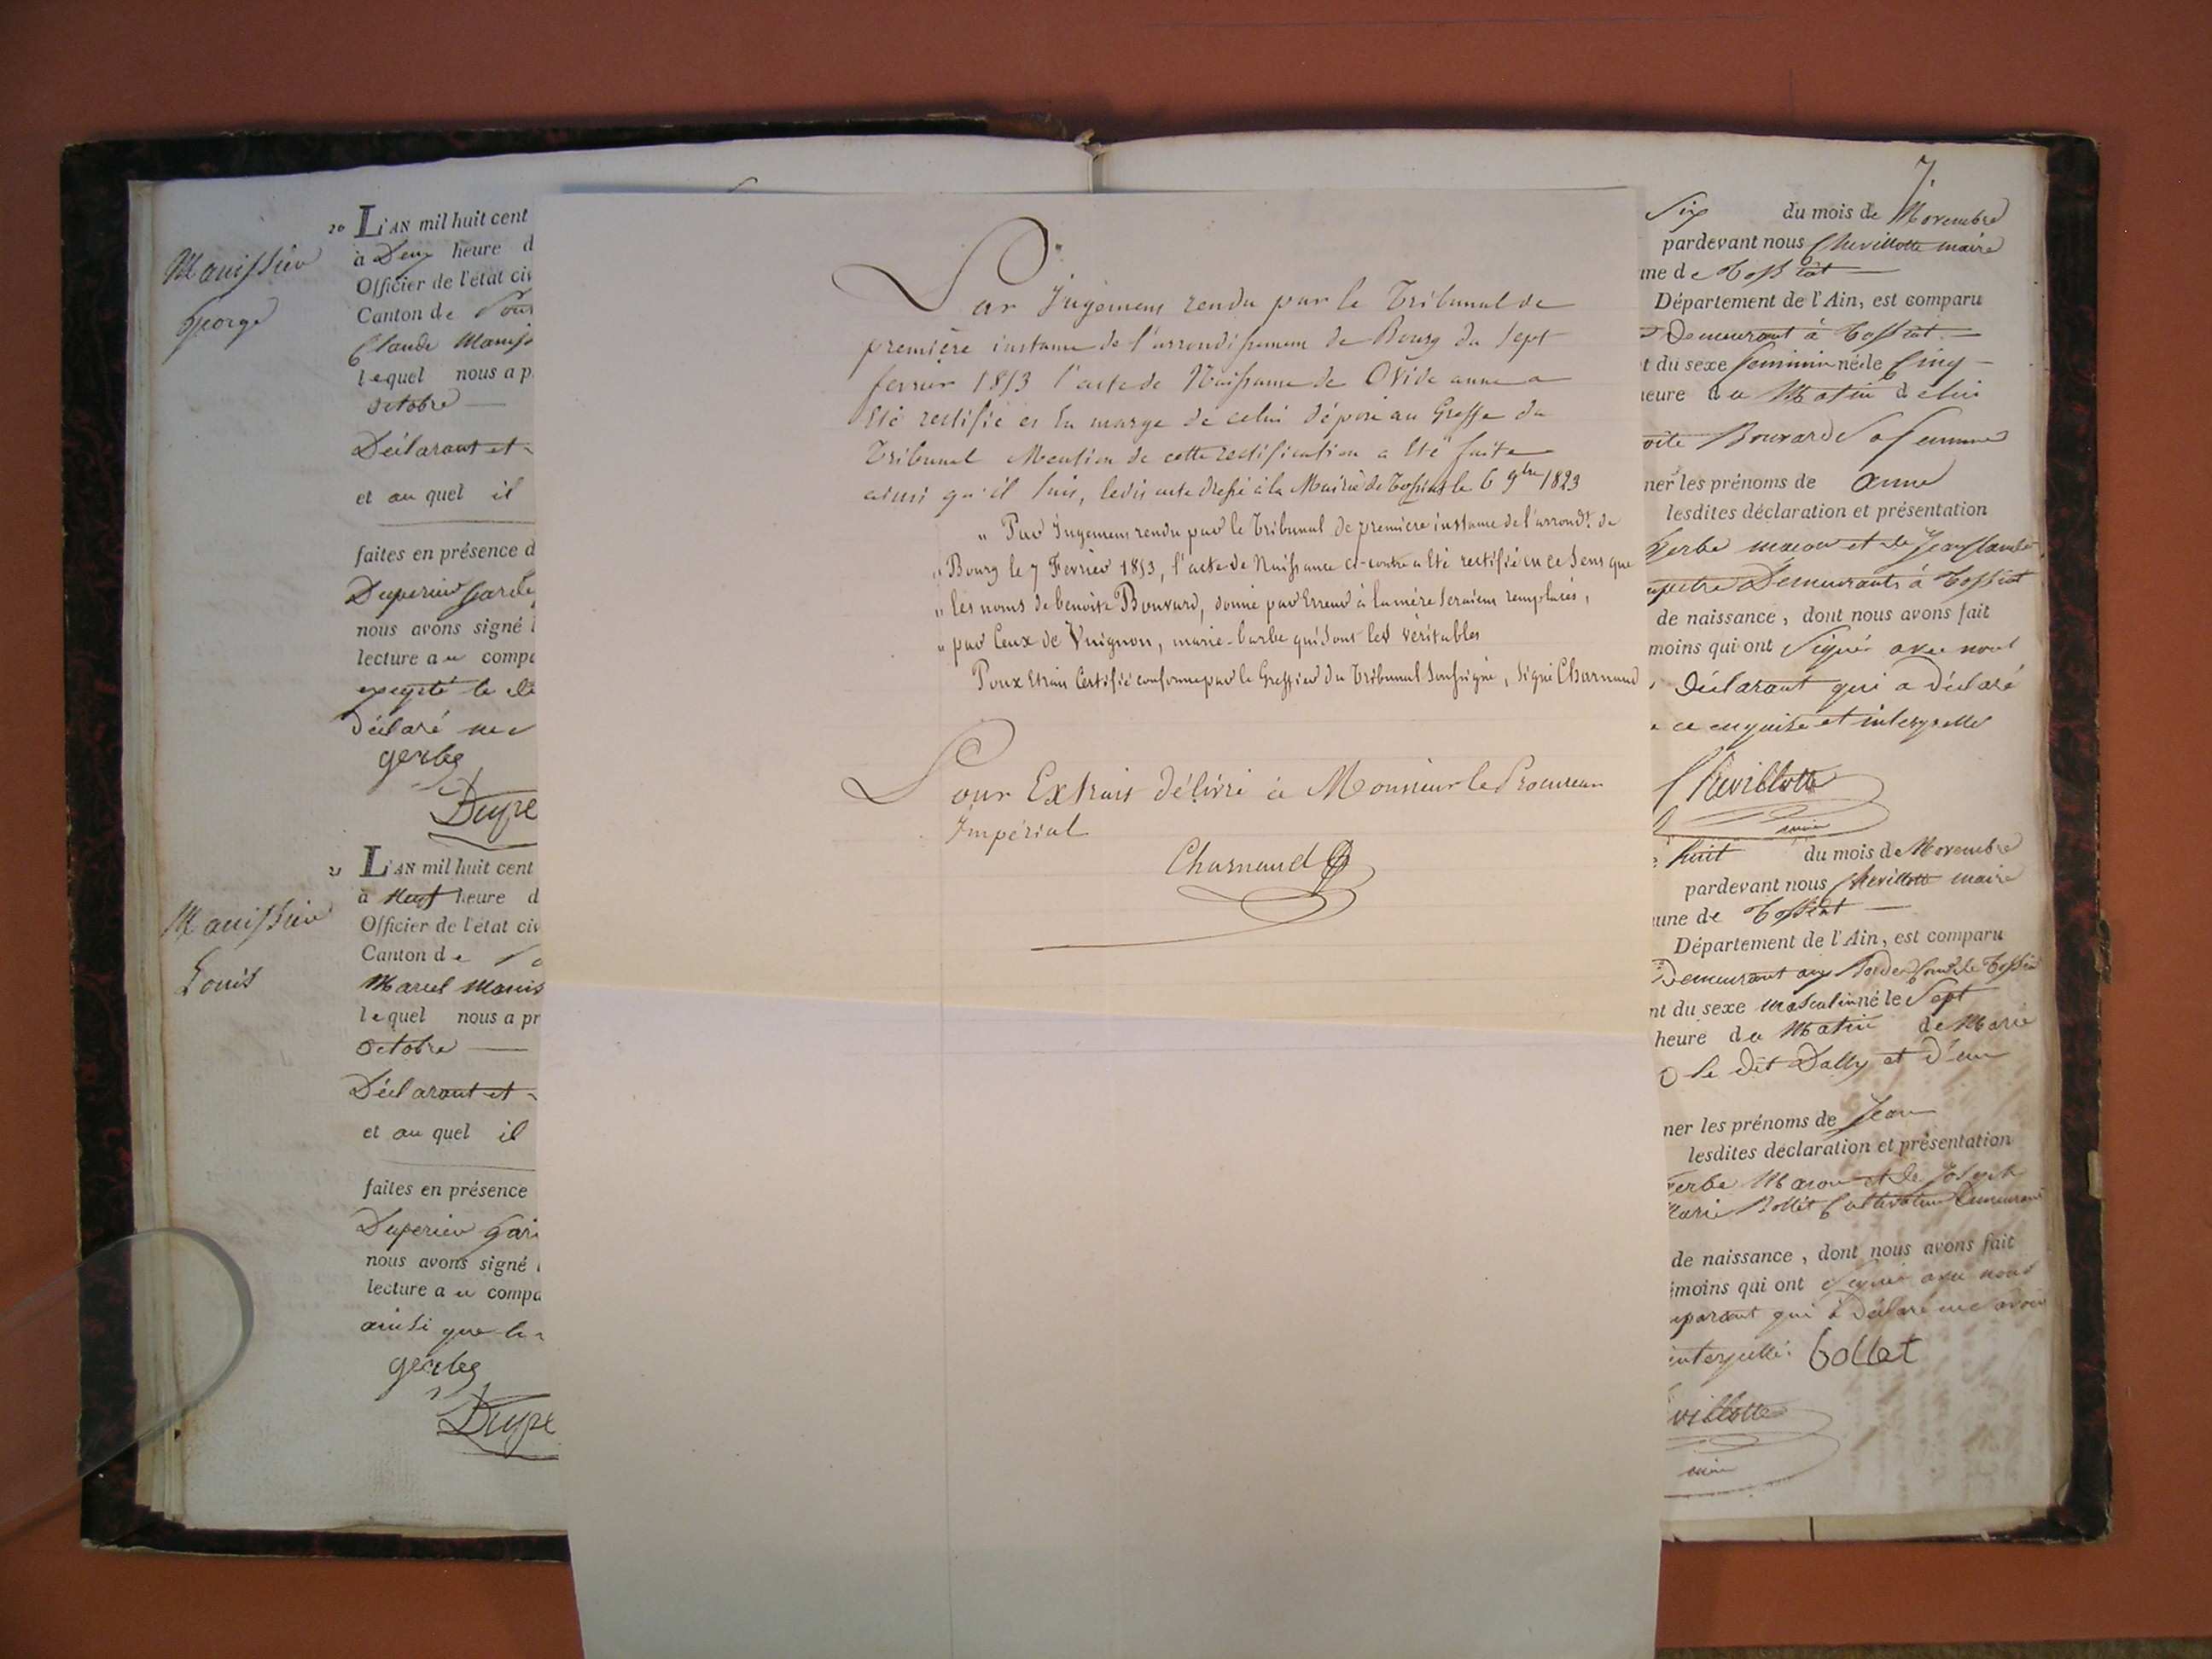 Manissier
George
20 L'AN mil huit cent
à Deux heure d
Officier de l'état civ
Canton de Pon
Claude Maniss
lequel nous a p
octobre
Déclarant et
et au quel il
faites en présence d
Duperier garde
nous avons signé
lecture au comp
excepté le de
déclaré ne
gerbe
Dupe
Manissier
Louis
21 L'AN mil huit cent
à Neuf heure d
Officier de l'état civ
Canton de
Marcel Manis
lequel nous a pr
octobre
Déclarant et
et au quel il
faites en présence
Duperier gar
nous avons signé
lecture au compa
ainsi que le
gerbe
Dupe
Par Jugement rendu par le Tribunal de
première instance de l'arrondissement de Bourg du sept
fevrier 1853 l'acte de Naissance de Ovide anne a
Eté rectifié et En marge de celui déposé au Greffe du
Tribunal Mention de cette rectification a Eté faite
ainsi qu'il suit, ledit acte dressé à la Mairie de Tossiat le 6 9bre 1823
" Par Jugement rendu par le Tribunal de première instance de l'arrondt. de
" Bourg le 7 Fevrier 1853, l'acte de Naissance ci-contre a Eté rectifié en ce Sens que
" les noms de benoite Bouvard, donné par Erreur à la mère seraient remplacés,
" par Ceux de Vuignon, marie-barbe qui sont les véritables
Pour Extrait Certifié conforme par le Greffier du Tribunal Soussigné, Signé Charnaud
Pour Extrait délivré à Monsieur le Procureur
Impérial
Charnaud
7.
Six du mois de Novembre
pardevant nous Chevillotte maire
ne de Tossiat
Département de l'Ain, est comparu
Demeurant à Tossiat
t du sexe feminin né le Cinq
heure du Matin de lui
oite Bouvard Sa femme
ner les prénoms de anne
lesdites déclaration et présentation
Gerbe macon et de Jean
Demeurants à Tossiat
de naissance, dont nous avons fait
moins qui ont Signés avec nous
Déclarant qui a déclaré
ce enquise et interpellé
Chevillotte
maire
huit du mois de Novembre
pardevant nous Chevillotte maire
une de Tossiat
Département de l'Ain, est comparu
Demeurant aux de Tossiat
nt du sexe masculin né le Sept
heure du Matin de Marie
le dit Dally et d'un
ner les prénoms de Jean
lesdites déclaration et présentation
Gerbe Macon et de Joseph
Marie Bollet Cultivateur Demeurant
de naissance, dont nous avons fait
émoins qui ont Signés avec nous
mparant qui a Déclaré ne savoir
interpellé. bollet
villotte
maire